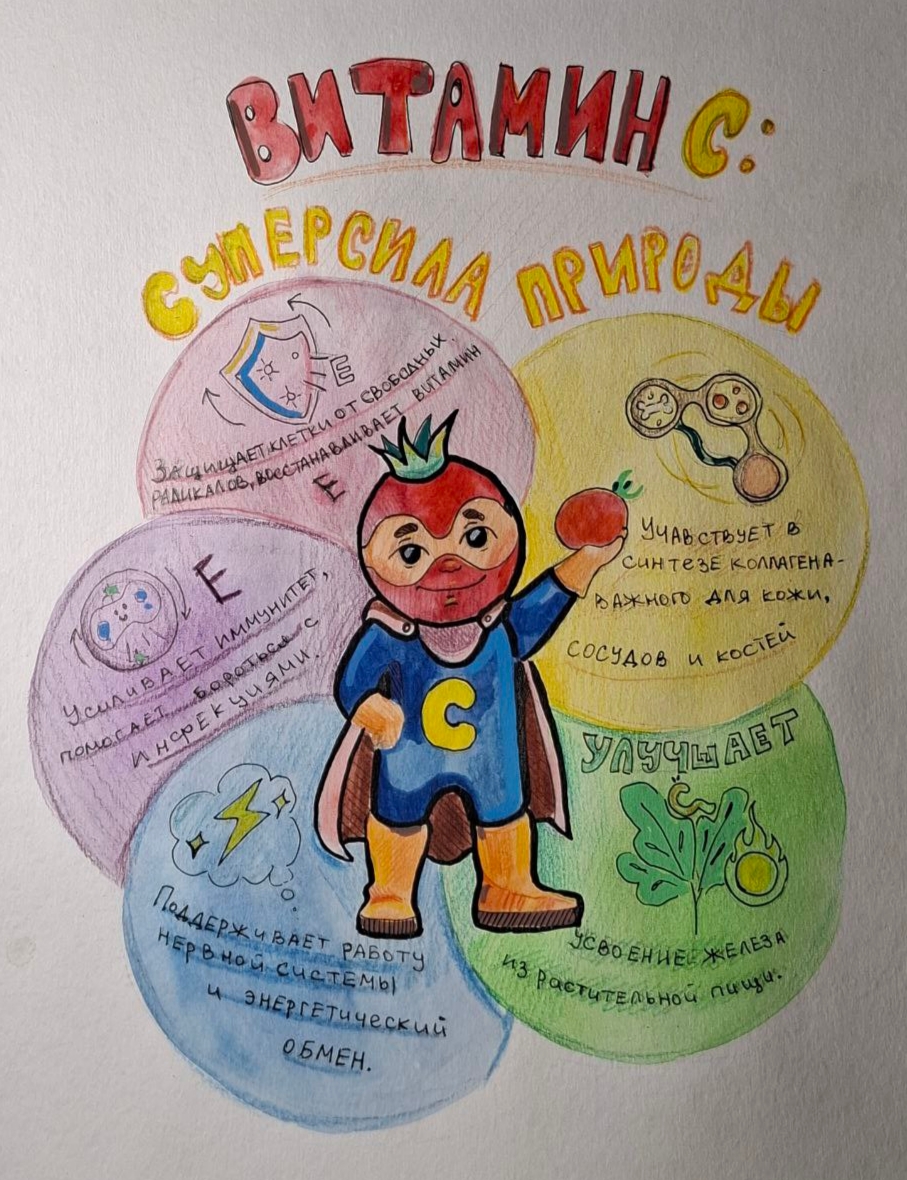 ВИТАМИН С:
СУПЕРСИЛА ПРИРОДЫ
E
ЗАЩИЩАЕТ КЛЕТКИ ОТ СВОБОДНЫХ
РАДИКАЛОВ, ВОССТАНАВЛИВАЕТ ВИТАМИН
E
УЧАВСТВУЕТ В
СИНТЕЗЕ КОЛЛАГЕНА-
ВАЖНОГО ДЛЯ КОЖИ,
СОСУДОВ И КОСТЕЙ
E
УСИЛИВАЕТ ИММУНИТЕТ,
ПОМОГАЕТ БОРОТЬСЯ С
ИНФЕКЦИЯМИ.
С
УЛУЧШАЕТ
УСВОЕНИЕ ЖЕЛЕЗА
ИЗ РАСТИТЕЛЬНОЙ ПИЩИ.
ПОДДЕРЖИВАЕТ РАБОТУ
НЕРВНОЙ СИСТЕМЫ
И ЭНЕРГЕТИЧЕСКИЙ
ОБМЕН.